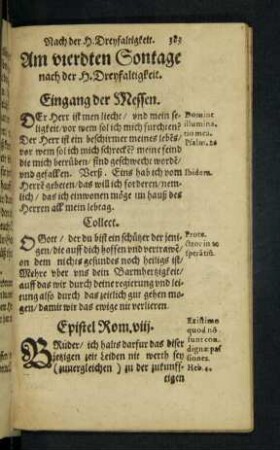 Nach der H. Dreyfaltigkeit. 383
Am vierdten Sontage
nach der H. Dreyfaltigkeit.
Eingang der Messen.
DEr Herr ist men liecht / vnd mein se-
ligkeit / vor wem sol ich mich furchten?
Der Herr ist ein beschirmer meines lebēs /
vor wem sol ich mich schreckē? meine feind
die mich berrüben / sind geschwecht wordē /
vnd gefallen. Verß. Eins hab ich vom
Herrē gebeten / das will ich forderen / nem-
lich / das ich einwonen möge im hauß des
Herren all mein lebtag.
Dominꝰ
illumina.
tio mea.
Psalm. 26
Ibidem.
Collect.
O Gott / der du bist ein schützer der jeni-
gen / die auff dich hoffen vnd vertrawē /
on dem nichts gesundes noch heiligs ist /
Mehre vber vns dein Barmhertzigkeit /
auff das wir durch deine regierung vnd lei-
tung also durch das zeitlich gut gehen mö-
gen / damit wir das ewige nit verlieren.
Prote.
ctor in te
sperātiū.
Epistel Rom. viij.
BRüder / ich halts darfur das diser
jetzigen zeit leiden nit werth sey
(zuuergleichen) zu der zukunff-
eigen
Existimo
quod nō
sunt con.
dignæ pas
siones.
Heb. 4.